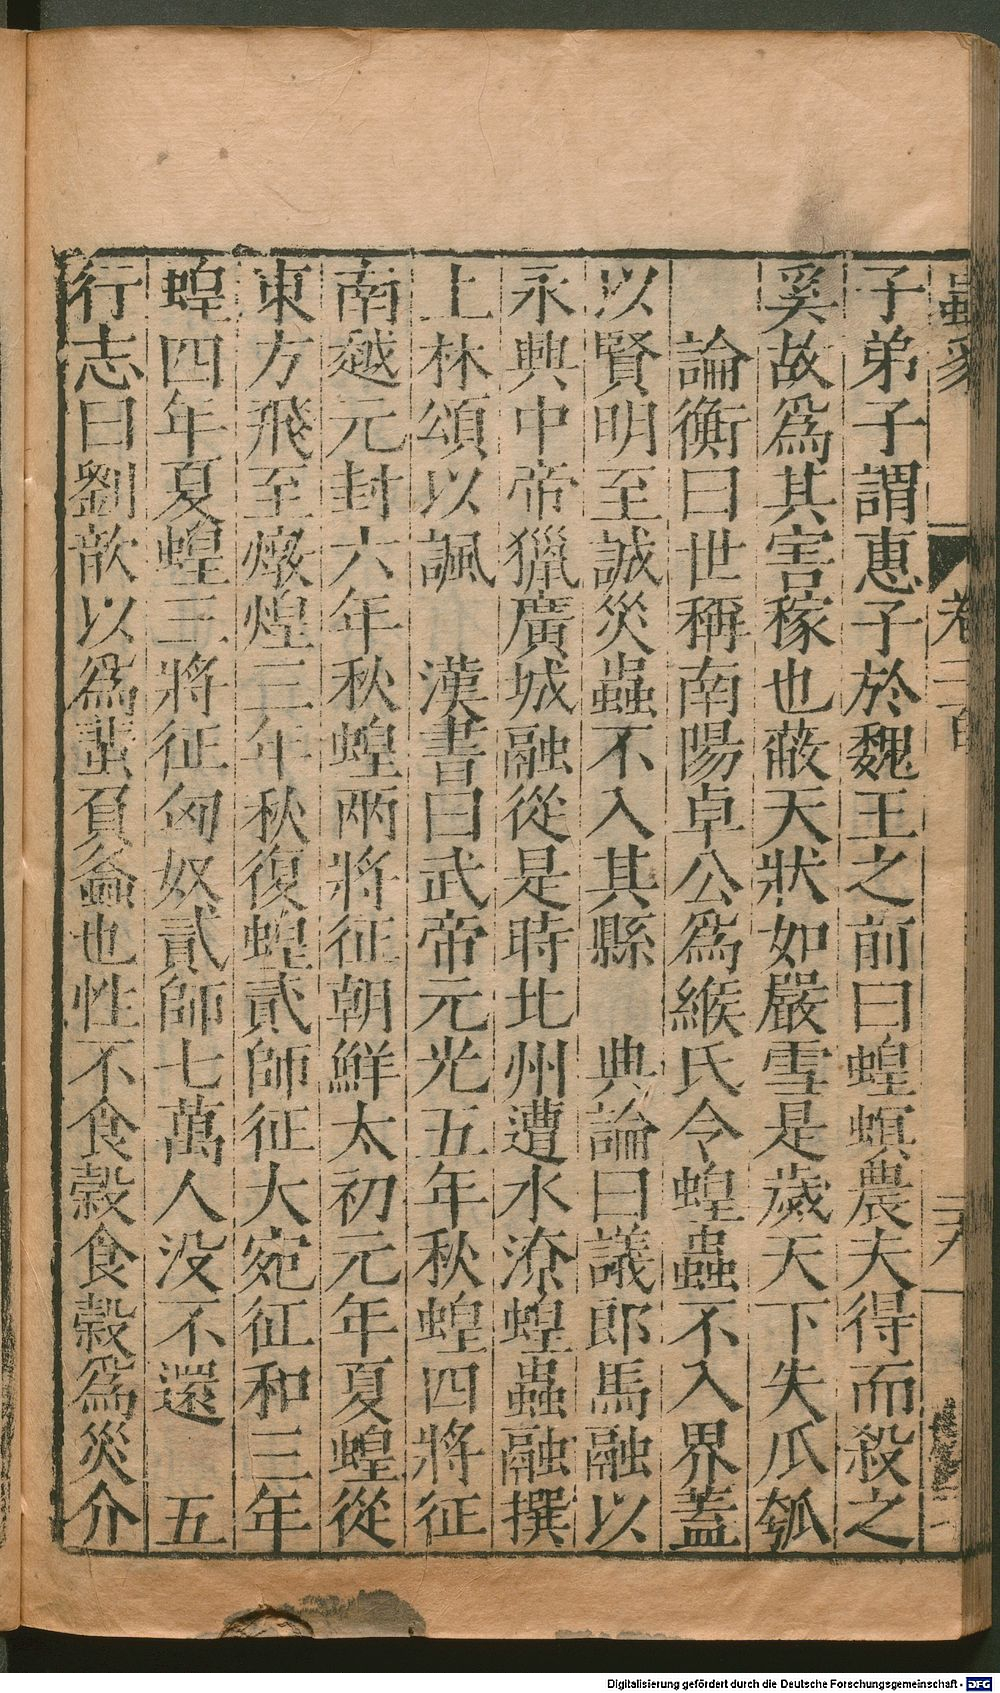 子弟子謂惠子於魏王之前曰蝗螟農夫得而殺之
奚故爲其害稼也蔽天狀如嚴雪是歲天下失瓜瓠
論衡曰世稱南陽卓公爲緱氏令蝗蟲不入界蓋
以賢明至誠災蟲不入其縣 典論曰議郎馬融以
永興中帝獵廣城融從是時北州遭水潦蝗蟲融撰
上林頌以諷 漢書曰武帝元光五年秋蝗四將征
南越元封六年秋蝗兩將征朝鮮太初元年夏蝗從
東方飛至燉煌三年秋復蝗貳師征大宛征和三年
蝗四年夏蝗三將征匈奴貳師七萬人没不還 五
行志曰劉歆以爲蜚負蠜也性不食穀食穀爲災介
Digitalisierung gefördert durch die Deutsche Forschungsgemeinschaft - DFG